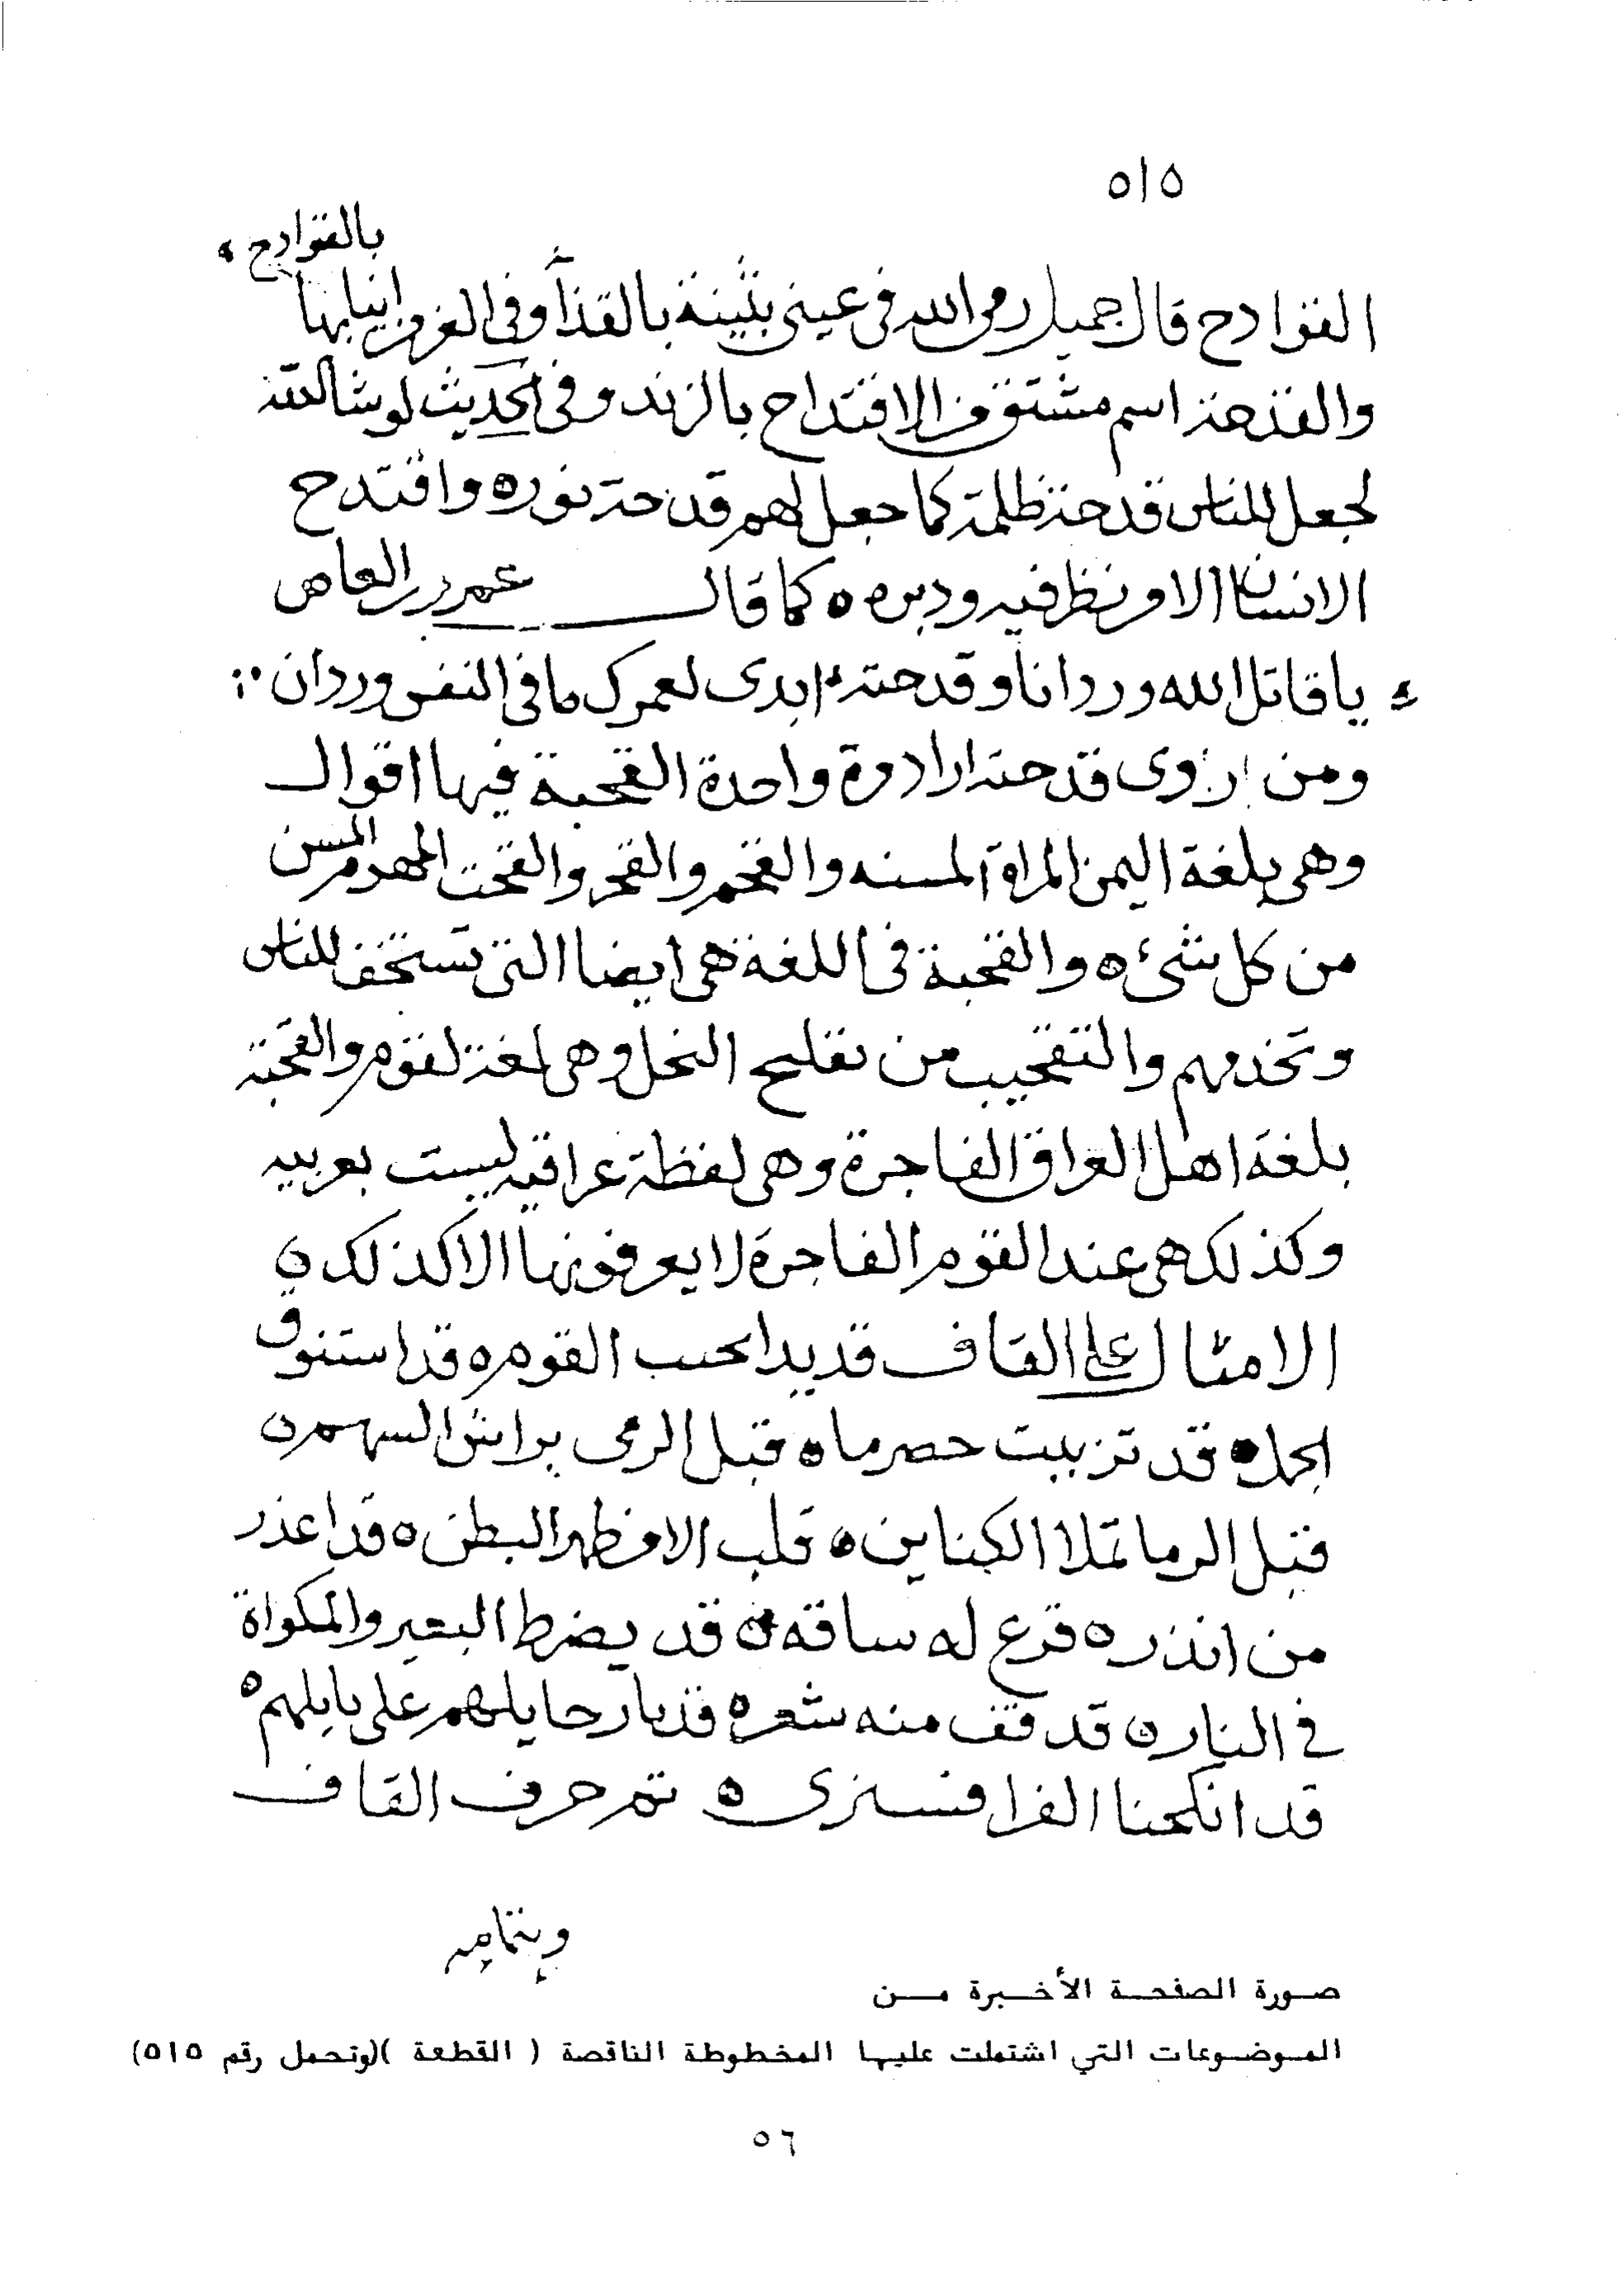 ٥١٥
بالقوادح
القوادح قال جميل رمى الله في عيني بثينة بالقذا وفي الغر من انيابها
والقدحة اسم مشتق من الاقتداح بالزند وفي الحديث لو شا الله
لجعل للناس قدحة ظلمة كما جعل لهم قدحة نوره واقتدح
الانسان الامر نظر فيه ودبره ه كما قال عمرو بن العاص
يا قاتل الله وردانا وقدحته ابدى لعمرك ما في النفس وردان
ومن روى قدحته اراد مرة واحدة القحبة فيها اقوال
وهي بلغة اليمن المراة المسنه والقحم والقحر والقحب الهرم المسن
من كل شيء ه والقحبة في اللغة هي ايضا التي تستخف للناس
وتخدمهم والتقحيب من تقليح النخل وهي لغة لقوم والقحبة
بلغة اهل العراق الفاجرة وهي لفظة عراقيه ليست بعربيه
وكذلك هي عند القوم الفاجرة لا يعرفونها الا كذلك ه
الامثال على القاف قد يدا القوم ه قد استنوق
الجمل ه قد تزببت حصرما ه قبل الرمى يراش السهم ه
قبل الرما تملا الكناين ه قلب الامر ظهرا لبطن ه قد اعذر
من انذر ه قرع له ساقه ه قد يضرط البعير والمكواة
في النار ه قد قف منه شعره حايلهم على نابلهم ه
قد انكحنا الفرا فسنرى ه تم حرف القاف
صورة الصفحة الأخيرة من
الموضوعات التي اشتملت عليها المخطوطة الناقصة ( القطعة )(وتحمل رقم ٥١٥)
٥٦